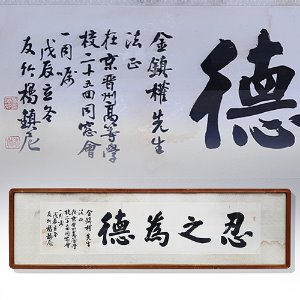 德
金鎮權先生
法正
在京晋州高等學
校二十五回同窓會
一同
戊辰立冬
友竹楊鎮尼
忍之為德
金鎮權先生
法正
在京晋州高等學
校二十五回同窓會
一同
戊辰立冬
友竹楊鎮尼